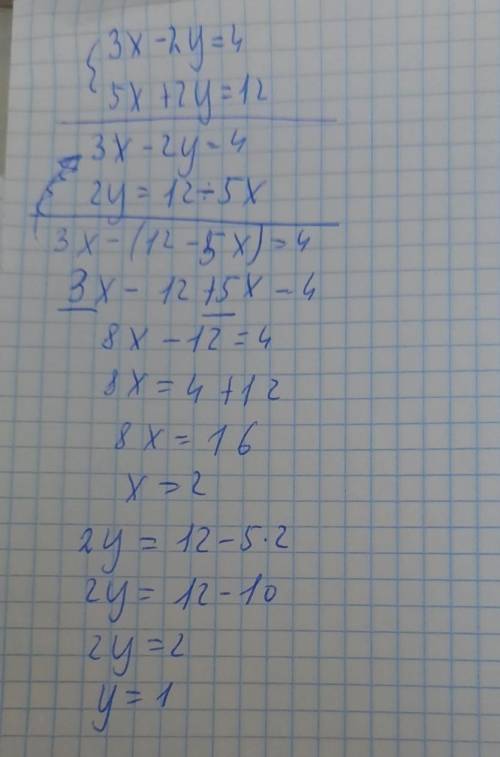 { 3x - 2y = 4
5x + 2y = 12
3x - 2y = 4
2y = 12 - 5x
3x - (12 - 5x) = 4
3x - 12 + 5x - 4
8x - 12 = 4
8x = 4 + 12
8x = 16
x = 2
2y = 12 - 5 · 2
2y = 12 - 10
2y = 2
y = 1